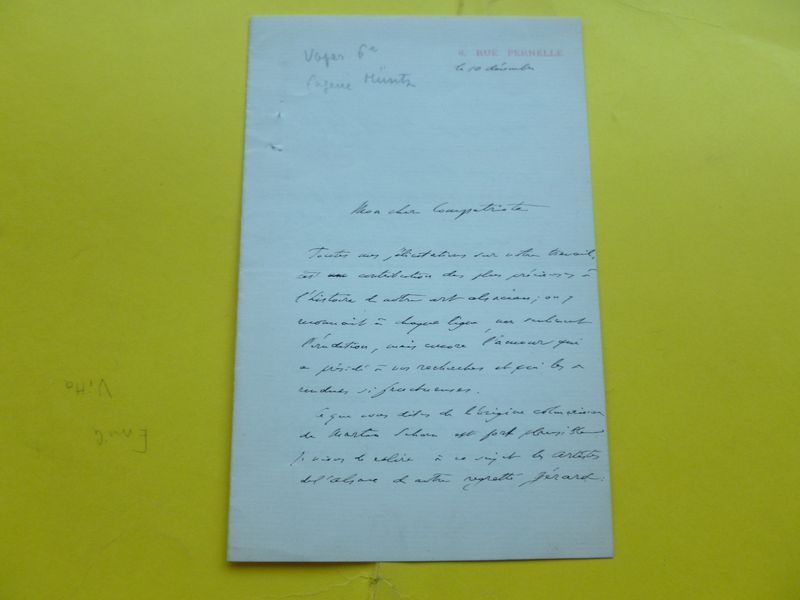 6, RUE PERNELLE
le 10 décembre
Voyer 6e
Eugène Müntz
Mon cher Compatriote
Toutes mes félicitations sur votre travail,
est une contribution des plus précieuses à
l'histoire de notre art alsacien ; on y
reconnait à chaque ligne, non seulement
l'érudition, mais encore l'amour qui
a présidé à vos recherches et qui les a
rendues si fructueuses.
Ce que vous dites de l'origine
de Martin Schon est fort plausible
Je viens de relire à ce sujet les artistes
de l'alsace de notre regretté Gérard :